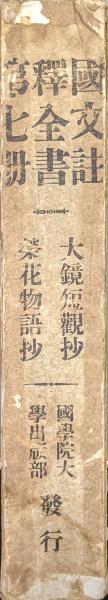 國文註
釋全書
第七册
大鏡短觀抄
榮花物語抄
國學院大
學出版部
發行